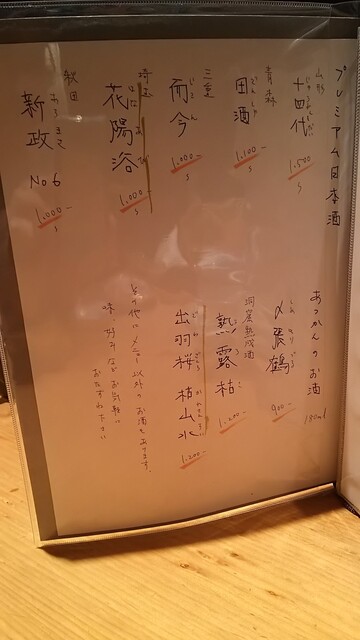 プレミアム日本酒
山形
十四代 じゅうよんだい
1,500〜
青森
田酒 でんしゅ
1,100〜
三重
而今 じこん
1,000〜
埼玉
花陽浴 はなあび
1,000〜
秋田
新政 あらまさ No6
1,000〜
あつかんのお酒
180ml
〆張鶴 しめはりつる
900〜
洞窟熟成酒
熟露枯
1,200〜
出羽桜 枯山水
1,200〜
その他にメニュー以外のお酒もあります。
味、好みなどお気軽に
おたずね下さい